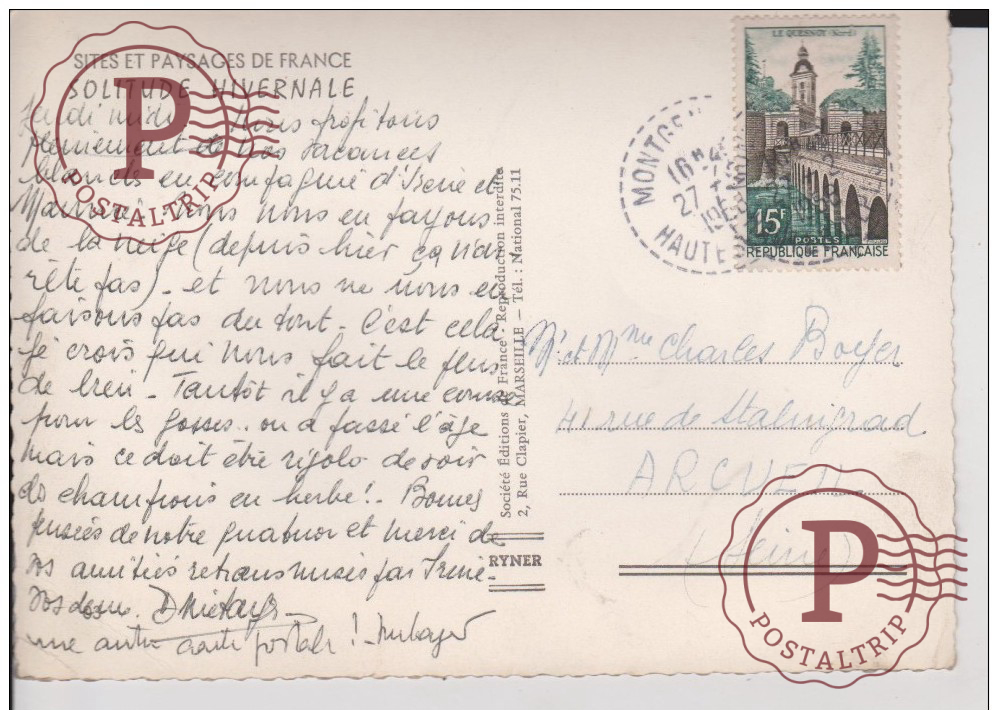 SITES ET PAYSAGES DE FRANCE
SOLITUDE HIVERNALE
Jeudi midi Nous profitons
pleinement de nos vacances
blanches en compagnie d'Irène et
nous nous en payons
de la neige (depuis hier ça n'ar
rête pas) - et nous ne nous en
faisons pas du tout - C'est cela
je crois qui nous fait le plus
de bien - Tantôt il y a une course
pour les gosses.. on a passé l'âge
mais ce doit être rigolo de voir
ds champions en herbe! - Bonnes
pensées de notre quatuor et merci de
vos amitiés retransmises par Irène -
une autre carte postale !
Société Éditions de France - Reproduction interdite
2, Rue Clapier, MARSEILLE - Tél. : National 75.11
RYNER
LE QUESNOY (Nord)
15F
POSTES
REPUBLIQUE FRANÇAISE
16H4
27
HAUTE
Mr et Mme Charles Boyer
41 rue de Stalingrad
ARCUEIL
(Seine)
P
POSTALTRIP
P
POSTALTRIP